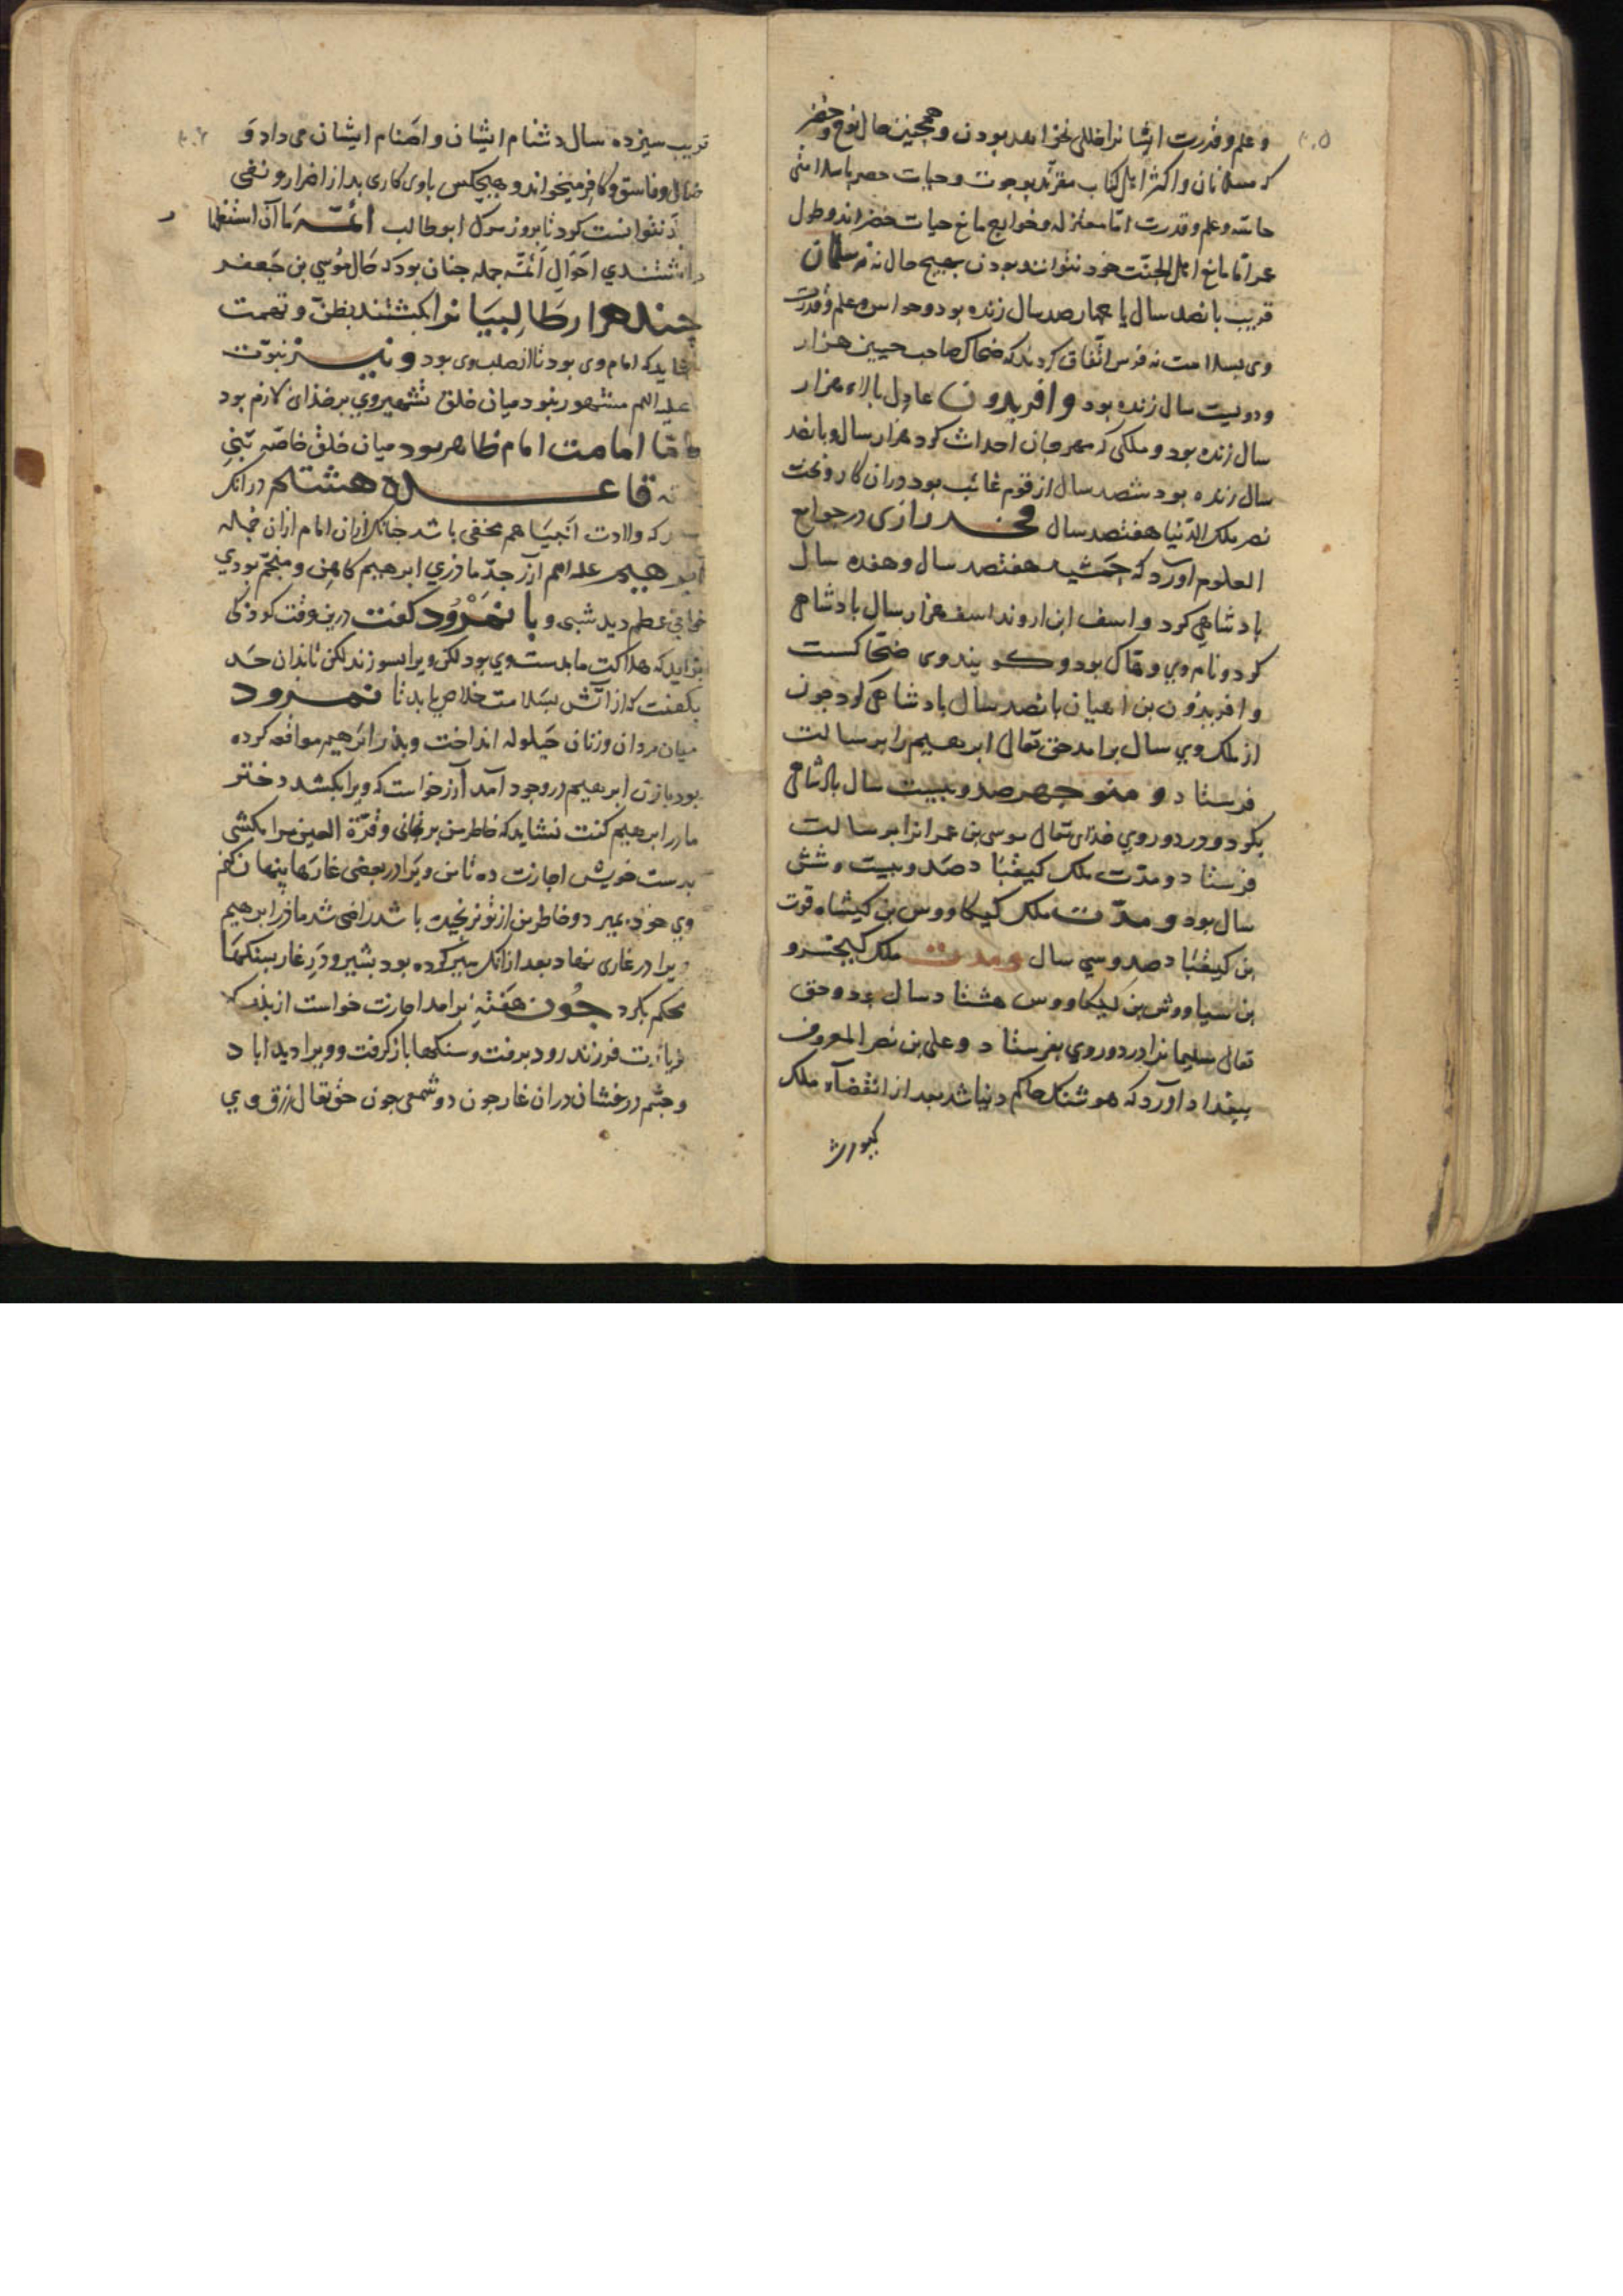 و علم و قدرت ایشانرا خللی نخواهد بودن و همچنین حال نوح و خضر
که مسلمانان و اکثر اهل کتاب مقرند بوجوت و حیات خضر با سلامتی
حاسّه و علم و قدرت امّا معتزله و خوارج مانع حیات خضراند و طول
عمر امّا مانع اهل الجنّت خود نتوانند بودن بهیچ حال نه نه سلمان
قریب بانصد سال یا چهارصد سال زنده بود و حواس و علم و قدرت
وی بسلامت نه فرس اتّفاق کردند که ضحاک صاحب حیین هزار
و دویست سال زنده بود و افریدون عادل بالاء هزار
سال زنده بود و ملکی که مهرجان احداث کرد هزار سال و بانصد
سال زنده بود ششصد سال از قوم غائب بود و ران کار و بخت
نصر ملک الدّنیا هفتصد سال فخر رازی در جوامع
العلوم آورد که جمشید هفتصد سال و هفده سال
بادشاهی کرد و اسف ابن اروند اسف هزار سال بادشاهی
کرد و نام وی وهاک بود و کویند وی ضحّاکست
و افریذون بن اهیان بانصد سال بادشاهی کرد جون
از ملک وی سال برامد حق تعالی ابرهیم را برسالت
فرستاد و منوجهر صد و بیست سال بادشاهی
بکرد و در دور وی خدای تعالی موسی بن عمرانرا برسالت
فرستاد و مدّت ملک کیقباد صد و بیست و شش
سال بود و مدّت ملک کیکاووس بن کیشاه قوت
بن کیقباد صد و سی سال و مدت ملک کیخسرو
بن سیاووش بن کیکاووس هشتاد سال بود و حق
تعالی سلیمانرا در دور وی بفرستاد و علی بن نصر المعروف
ببغداد آورد که هوشنک حاکم دنیا شد بعد از انقضاء ملک
کیومرث
قریب سیزده سال دشنام ایشان و اصنام ایشان می داد و
ضال و فاسق و کافر میخواند و هیچکس با وی کاری بد از اضرار و نفی
نتوانست کرد تا بروز مرک ابو طالب ائمّه ما آن استظهار
داشتندی احوال ائمّه جمله جنان بود که حال موسی بن جعفر
چند هزار طالبیانرا بکشتند بظنّ و تهمت
شاید که امام وی بود تا از صلب وی بود و نیز نبوّت
علیه السلم مشهور بنود میان خلق تشهیر وی بر خذای لازم بود
امّا امامت امام ظاهر بود میان خلق خاصّه تبنی
نه قاعده هشتم در آنک
که ولادت انبیا هم مخفی باشد جنانک ازان امام ازان جمله
ابرهیم علیه السلم آزر جدّ ماذری ابرهیم کاهن و منجّم بودی
خوابی عظیم دید شبی و با نمرود کفت درین وقت کوذکی
بزاید که هلاکت ما بدست وی بود لکن ویرا بسوزند لکن تا بدان حد
بکفت که از آتش بسلامت خلاص یابد تا نمرود
میان مردان و زنان حیلوله انداخت و پذر ابرهیم مواقعه کرده
بود با زن ابرهیم در وجود آمد آزر خواست که ویرا بکشد دختر
مادر ابرهیم کفت نشاید که خاطر من برنجانی و قرّة العین مرا بکشی
بدست خویش اجازت ده تا من ویرا در بعضی غارها پنهان کنم
وی خود بمیرد و خاطر من از تو نرنجیده باشد راضی شد ماذر ابرهیم
ویرا در غاری نهاد بعد ازانک سیر کرده بود بشیر و در غار بسنکها
محکم بکرد جون هفته برامد اجازت خواست از بذر که
بزیارت فرزند رود برفت و سنکها باز کرفت و ویرا دید
و چشم درخشان دران غار جون دو شمعی جون حق تعالی رزق وی